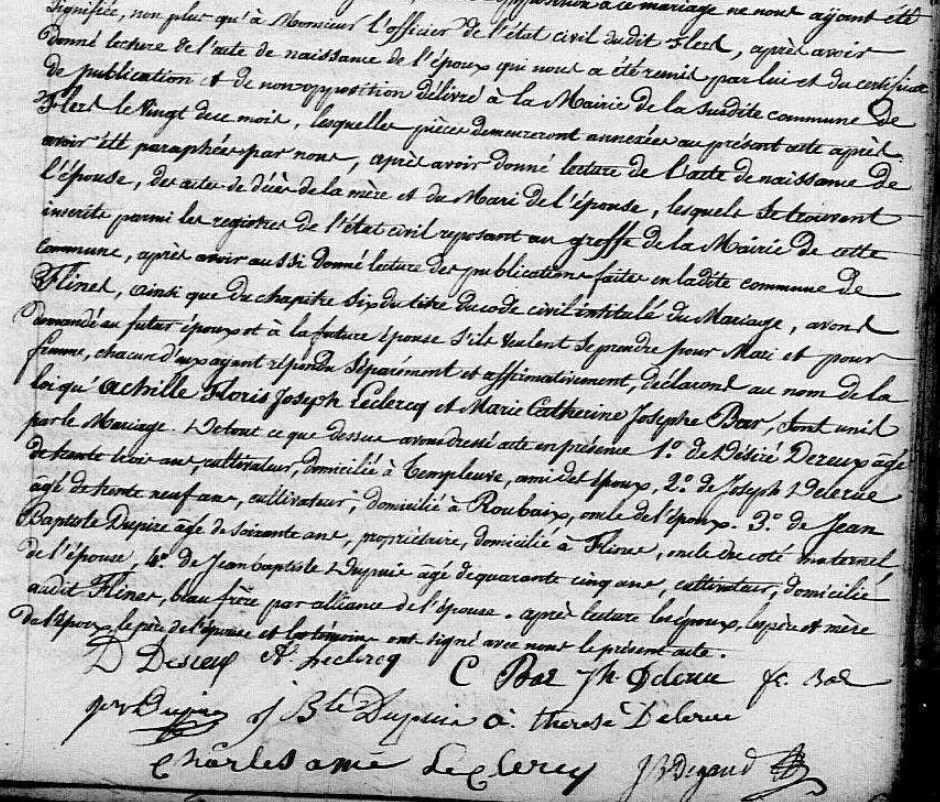 opposition à ce mariage ne nous ayant été
signifiée, non plus qu'à Monsieur l'officier de l'état civil dudit Flers, après avoir
donné lecture de l'acte de naissance de l'époux qui nous a été remis par lui et du certificat
de publication et de non opposition délivré à la Mairie de la susdite commune de
Flers le vingt de ce mois, lesquelles pièces demeureront annexées au présent acte après
avoir été paraphées par nous, après avoir donné lecture de l'acte de naissance de
l'épouse, des actes de décès de la mère et du Mari de l'épouse, lesquels se trouvent
inscrits parmi les registres de l'état civil reposant au greffe de la Mairie de cette
commune, après avoir aussi donné lecture des publications faites en ladite commune de
Flines, ainsi que du chapitre six du titre du code civil intitulé du Mariage, avons
demandé au futur époux et à la future épouse s'ils veulent se prendre pour Mari et pour
femme, chacun d'eux ayant répondu séparément et affirmativement, déclarons au nom de la
loi qu'Achille Floris Joseph Leclercq et Marie Catherine Josephe Bar, sont unis
par le Mariage. De tout ce que dessus avons dressé acte en présence 1.o de Désiré Dereux âgé
de trente trois ans, cultivateur, domicilié à Templeuve, ami des époux. 2.o de Joseph Delerue
âgé de trente neuf ans, cultivateur, domicilié à Roubaix, oncle de l'époux. 3.o de Jean
Baptiste Dupire âgé de soixante ans, propriétaire, domicilié à Flines, oncle du coté maternel
de l'épouse, 4.o de Jean Baptiste Dupuis âgé de quarante cinq ans, cultivateur, domicilié
audit Flines, beau frère par alliance de l'épouse. après lecture les époux, les père et mère
de l'époux, le père de l'épouse et les témoins ont signé avec nous le présent acte.
D Dereux A. Leclercq C Bar Jh Delerue fc. Bar
Dupire J Bte Dupuis therese Delerue
Charles amé LeClercq JB Degand